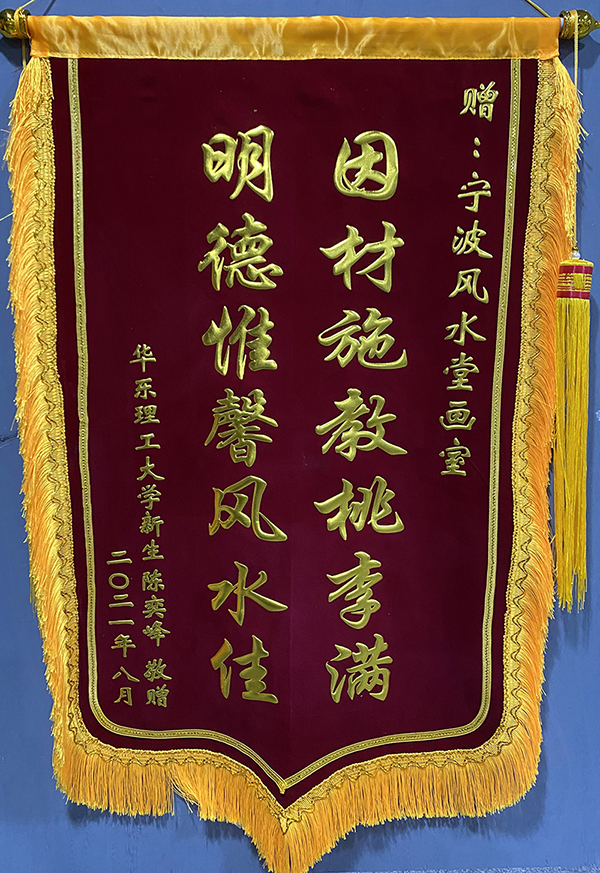 赠：宁波风水堂画室
因材施教桃李满
明德惟馨风水佳
华东理工大学新生 陈奕峰 敬赠
二〇二一年八月